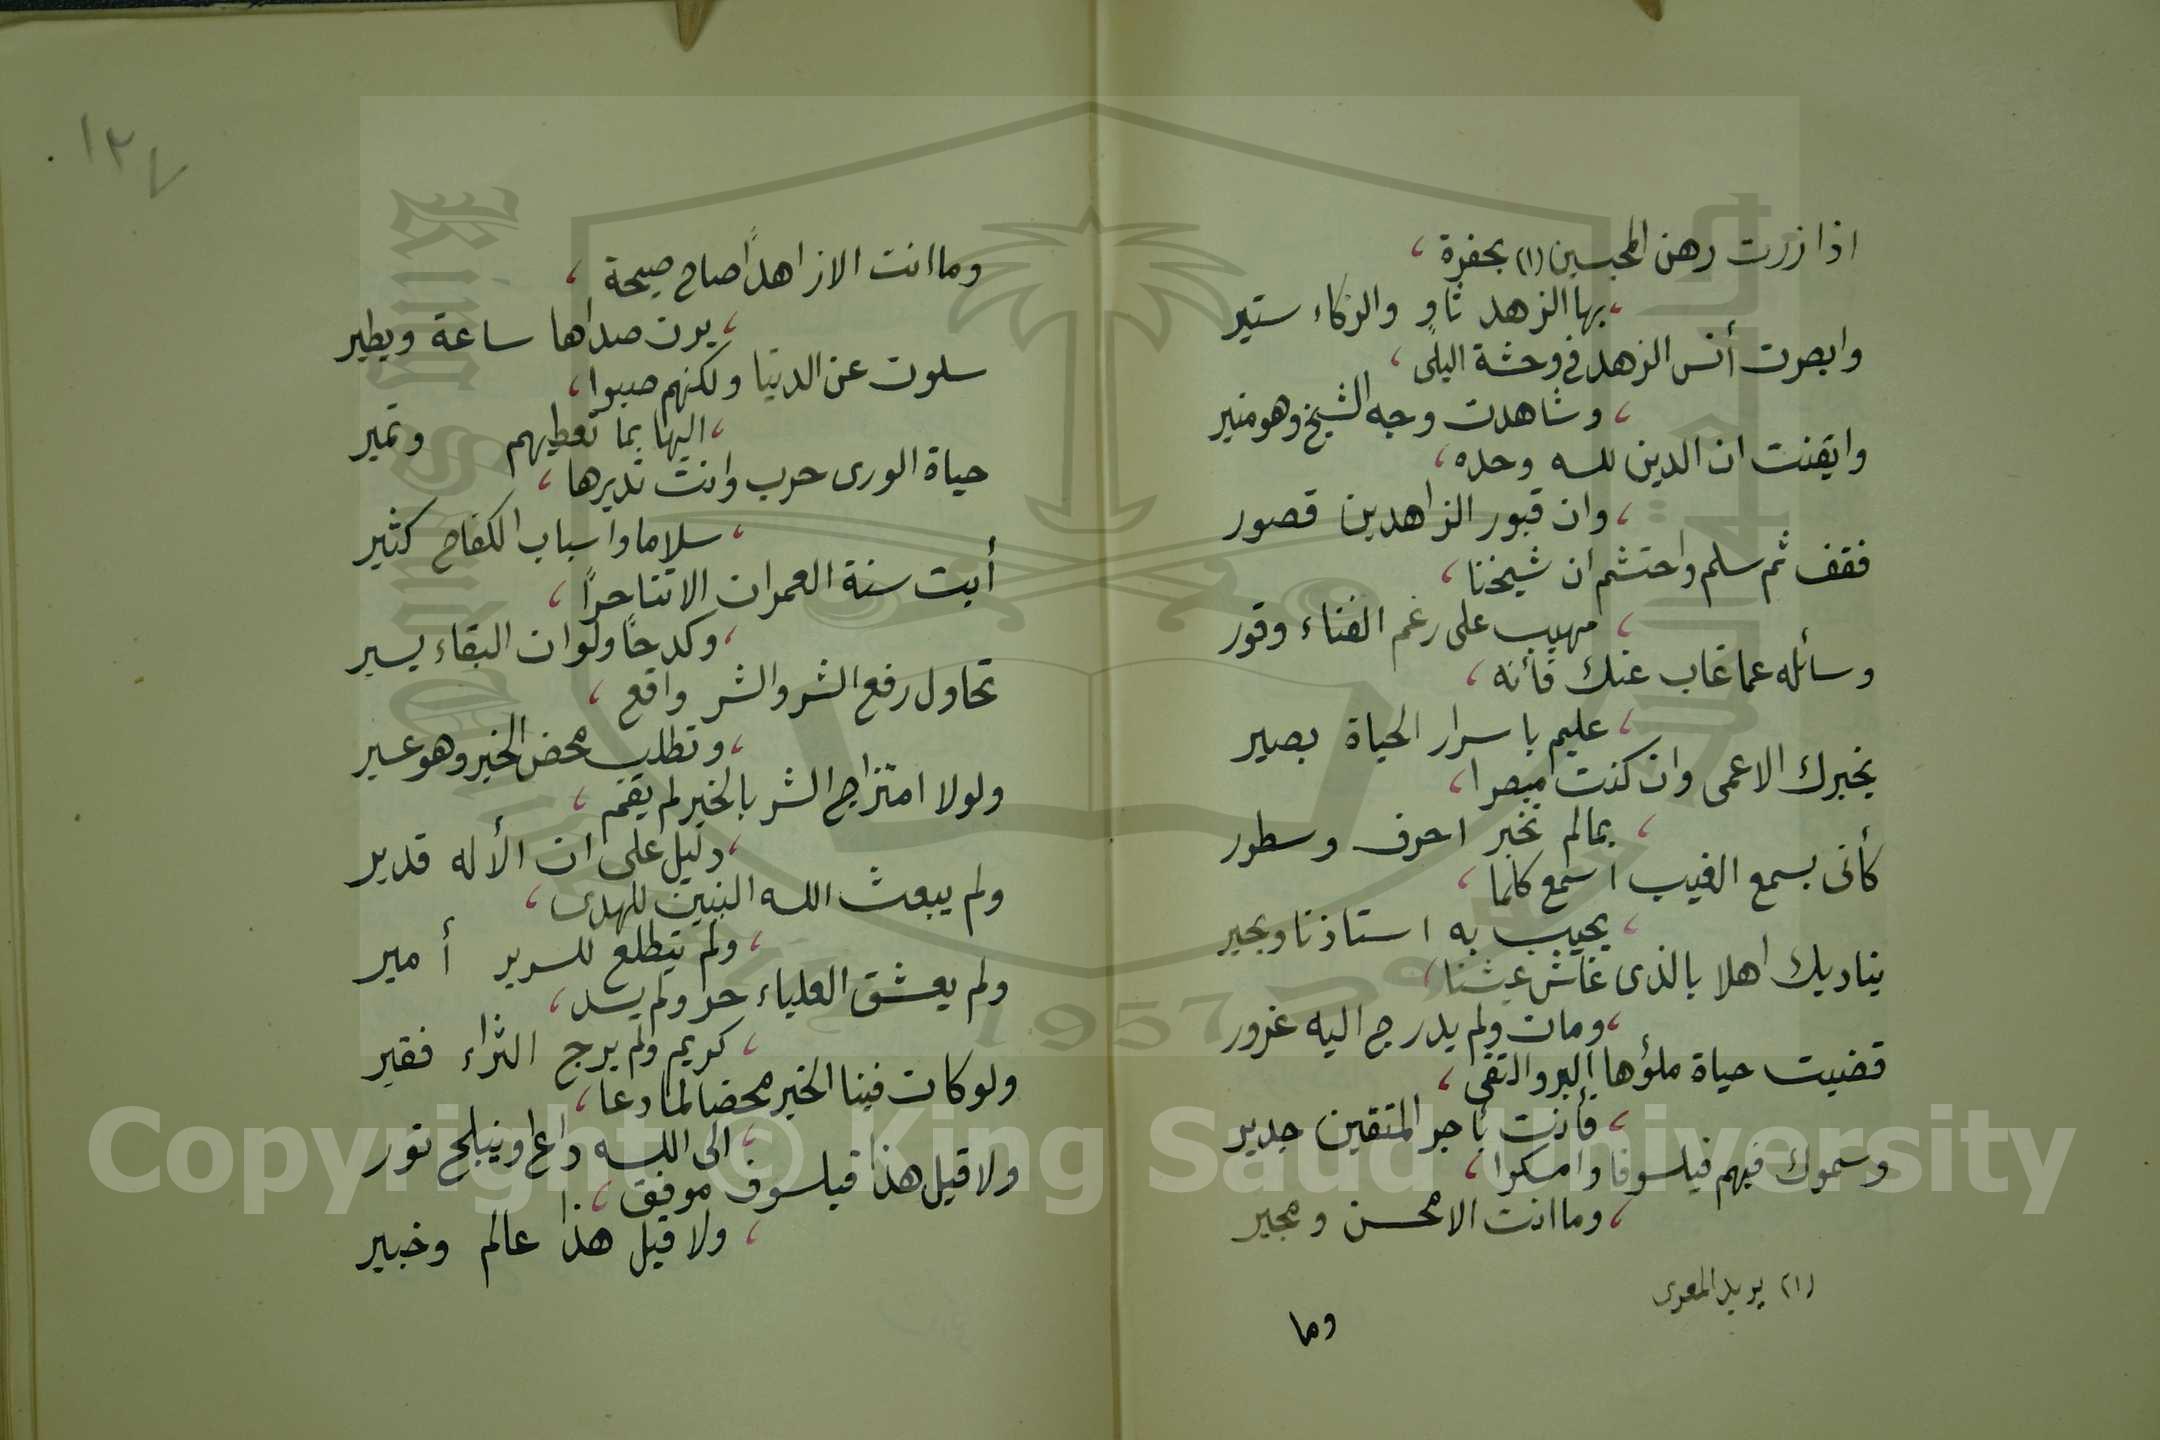 اذا زرت رهن المحبسين (١) بحفرة ،
، بها الزهد ثاو والذكاء ستير
وابصرت أنس الزهد في وحشة البلى ،
، وشاهدت وجه الشيخ وهو منير
وايقنت ان الدين لله وحده ،
، وان قبور الزاهدين قصور
فقف ثم سلم واحتشم ان شيخنا ،
، مهيب على رغم الفناء وقور
وسائله عما غاب عنك فأنه ،
، عليم باسرار الحياة بصير
يخبرك الاعمى وان كنت مبصرا ،
، بمالم تخبر احرف وسطور
كأنى بسمع الغيب اسمع كلما ،
، يجيب به استاذنا ويجير
يناديك اهلا بالذى عاش عيشنا ،
، ومات ولم يدرج اليه غرور
قضيت حياة ملؤها البر والتقى ،
، فأنت بأجر المتقين جدير
وسموك فيهم فيلسوفا وامسكوا ،
، وما انت الا محسن ومجير
(١) يريد المعرى
وما
١٢٧
وما انت الا زاهدًا صاح صيحة ،
، يرن صداها ساعة ويطير
سلوت عن الدنيا ولكنهم صبوا ،
، اليها بما تعطيهم وتمير
حياة الورى حرب وانت تديرها ،
، سلاما واسباب الكفاح كثير
أبت سنة العمران الا تناحرًا ،
، وكدحًا ولوان البقاء يسير
تحاول رفع الشر والشر واقع ،
، وتطلب محض الخير وهو عسير
ولولا امتزاج الشر بالخير لم يقم ،
، دليل على ان الأله قدير
ولم يبعث الله النبيين للهدى ،
، ولم يتطلع للسرير أمير
ولم يعشق العلياء حر ولم يسد ،
، كريم ولم يرج الثراء فقير
ولوكان فينا الخير محضا لما دعا ،
، الى الله داع او تبلج نور
ولا قيل هذا فيلسوف موفق ،
، ولا قيل هذا عالم وخبير
King Saud University
1957
Copyright © King Saud University